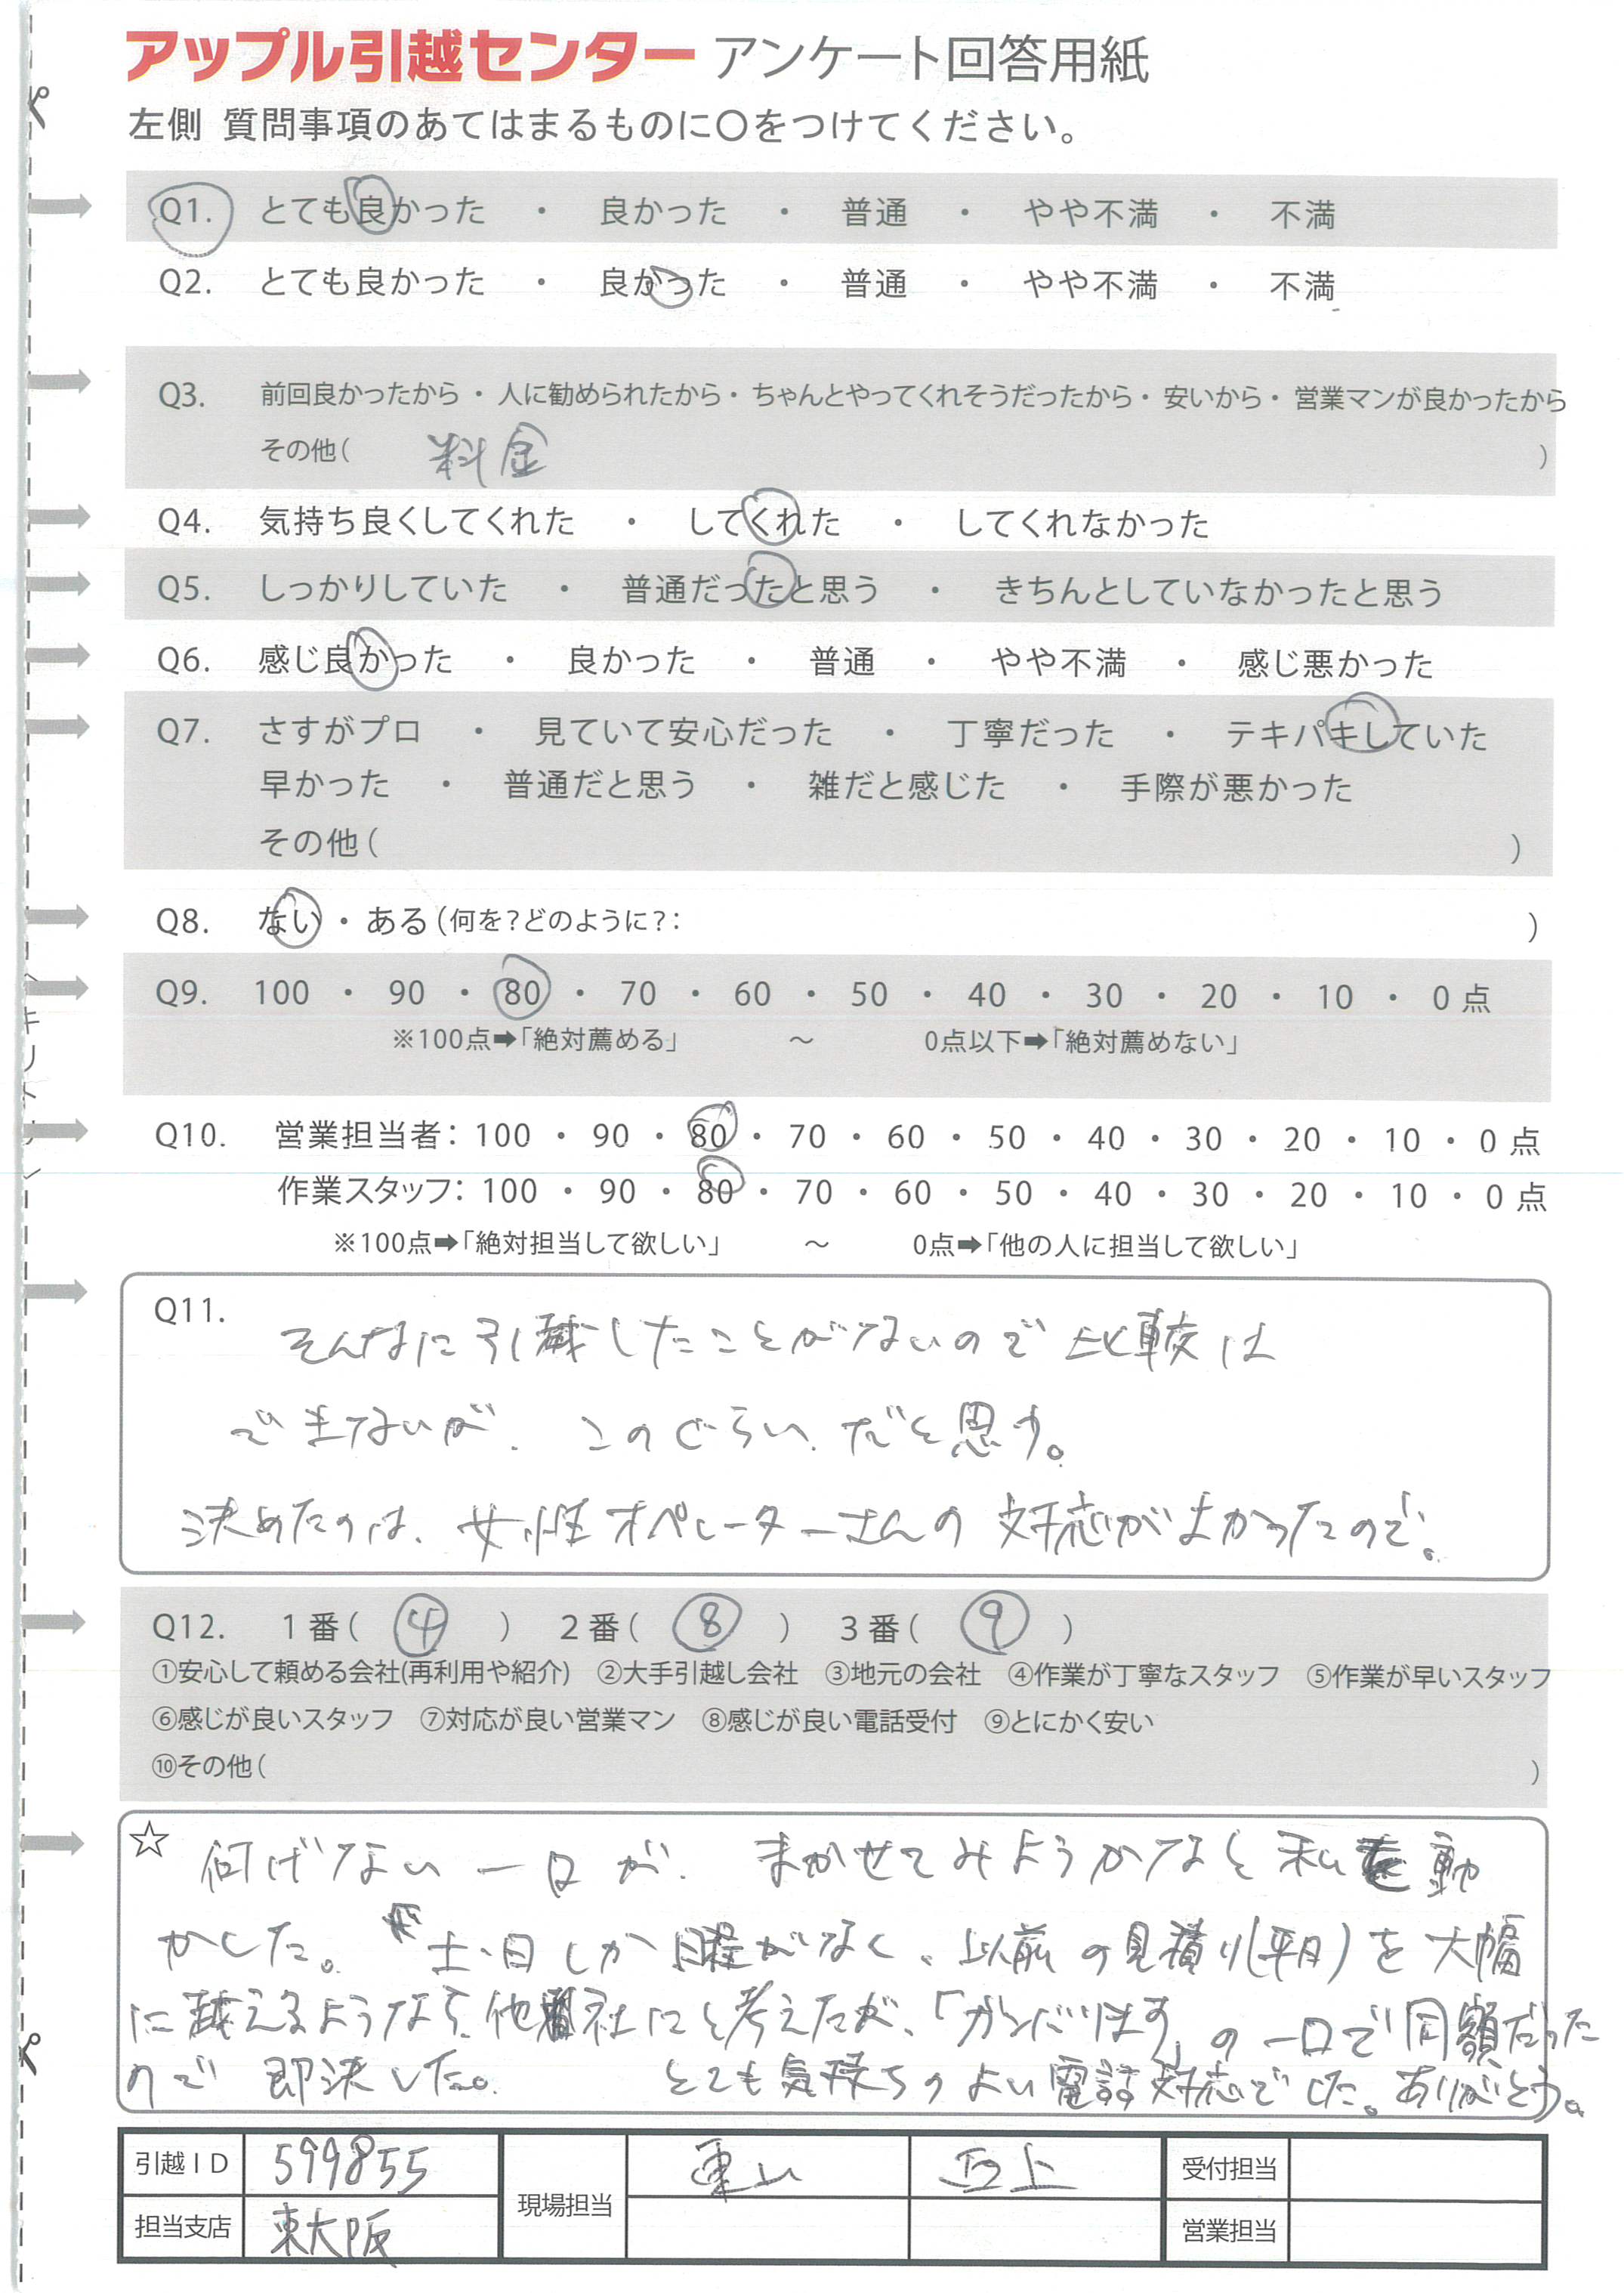 アップル引越センター アンケート回答用紙
左側 質問事項のあてはまるものに〇をつけてください。
Q1. とても良かった ・ 良かった ・ 普通 ・ やや不満 ・ 不満
Q2. とても良かった ・ 良かった ・ 普通 ・ やや不満 ・ 不満
Q3. 前回良かったから・人に勧められたから・ちゃんとやってくれそうだったから・安いから・営業マンが良かったから
その他( 料金 )
Q4. 気持ち良くしてくれた ・ してくれた ・ してくれなかった
Q5. しっかりしていた ・ 普通だったと思う ・ きちんとしていなかったと思う
Q6. 感じ良かった ・ 良かった ・ 普通 ・ やや不満 ・ 感じ悪かった
Q7. さすがプロ ・ 見ていて安心だった ・ 丁寧だった ・ テキパキしていた
早かった ・ 普通だと思う ・ 雑だと感じた ・ 手際が悪かった
その他( )
Q8. ない・ある(何を?どのように?: )
Q9. 100 ・ 90 ・ 80 ・ 70 ・ 60 ・ 50 ・ 40 ・ 30 ・ 20 ・ 10 ・ 0 点
※100点➡「絶対薦める」 ～ 0点以下➡「絶対薦めない」
Q10. 営業担当者: 100 ・ 90 ・ 80 ・ 70 ・ 60 ・ 50 ・ 40 ・ 30 ・ 20 ・ 10 ・ 0 点
作業スタッフ: 100 ・ 90 ・ 80 ・ 70 ・ 60 ・ 50 ・ 40 ・ 30 ・ 20 ・ 10 ・ 0 点
※100点➡「絶対担当して欲しい」 ～ 0点➡「他の人に担当して欲しい」
Q11. そんなに引越したことがないので比較は
できないが、このぐらい、だと思う。
決めたのは、女性オペレーターさんの対応がよかったので。
Q12. 1番( ④ ) 2番( ⑧ ) 3番( ⑨ )
①安心して頼める会社(再利用や紹介) ②大手引越し会社 ③地元の会社 ④作業が丁寧なスタッフ ⑤作業が早いスタッフ
⑥感じが良いスタッフ ⑦対応が良い営業マン ⑧感じが良い電話受付 ⑨とにかく安い
⑩その他( )
☆ 何げない一口が、まかせてみようかなと私を動
かした。土・日しか日程がなく、以前の見積り(平日)を大幅
に越えるようなら、他社にと考えたが、「がんばります」の一口で同額だった
ので即決した。 とても気持ちのよい電話対応でした。ありがとう。
引越ID 599855 現場担当 東山 受付担当
担当支店 東大阪 営業担当
キリトリ